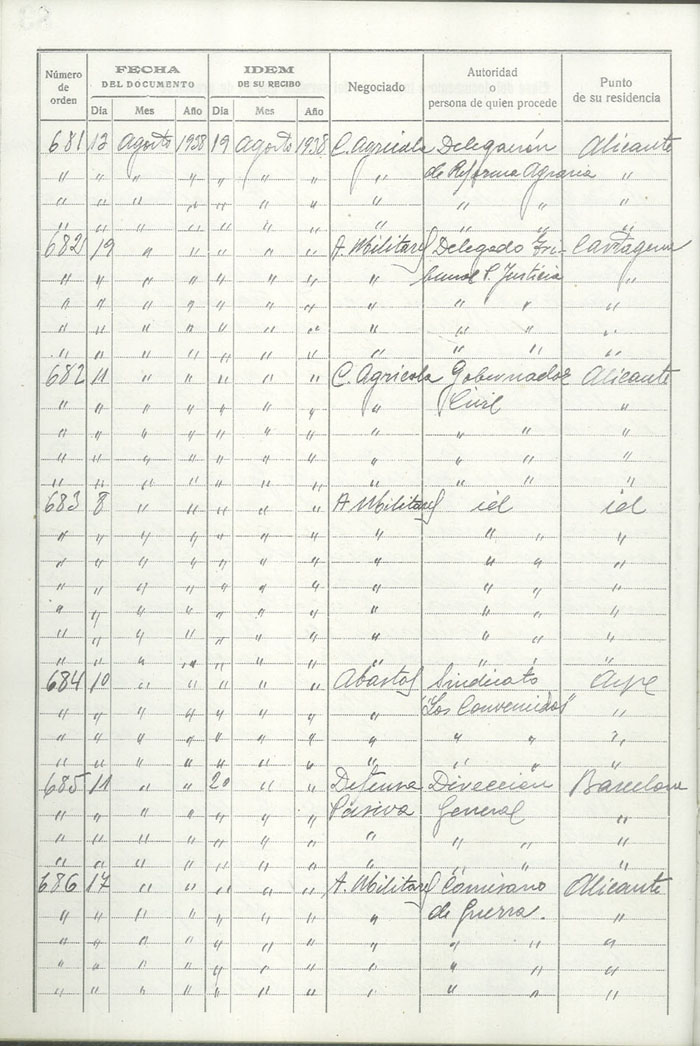 Número de orden FECHA DEL DOCUMENTO IDEM DE SU RECIBO Negociado Autoridad o persona de quien procede Punto de su residencia
Dia Mes Año Dia Mes Año
681 12 Agosto 1938 19 Agosto 1938 C. Agrícola Delegación Alicante
" " " " " " " " de Reforma Agraria "
" " " " " " " " " " "
" " " " " " " " " " "
682 19 " " " " " A. Militares Delegado Tri- Cartagena
" " " " " " " " bunal P. Justicia "
" " " " " " " " " " "
" " " " " " " " " " "
" " " " " " " " " " "
682 11 " " " " " C. Agrícola Gobernador Alicante
" " " " " " " " Civil "
" " " " " " " " " " "
" " " " " " " " " " "
" " " " " " " " " " "
683 8 " " " " " A. Militares id id
" " " " " " " " " " "
" " " " " " " " " " "
" " " " " " " " " " "
" " " " " " " " " " "
" " " " " " " " " " "
" " " " " " " " " " "
684 10 " " " " " Abastos Sindicato Aspe
" " " " " " " " "Los Convenidos" "
" " " " " " " " " " "
" " " " " " " " " " "
685 11 " " 20 " " Defensa Dirección Barcelona
" " " " " " " Pasiva General "
" " " " " " " " " " "
" " " " " " " " " " "
686 17 " " " " " A. Militares Comisario Alicante
" " " " " " " " de Guerra. "
" " " " " " " " " " "
" " " " " " " " " " "
" " " " " " " " " " "